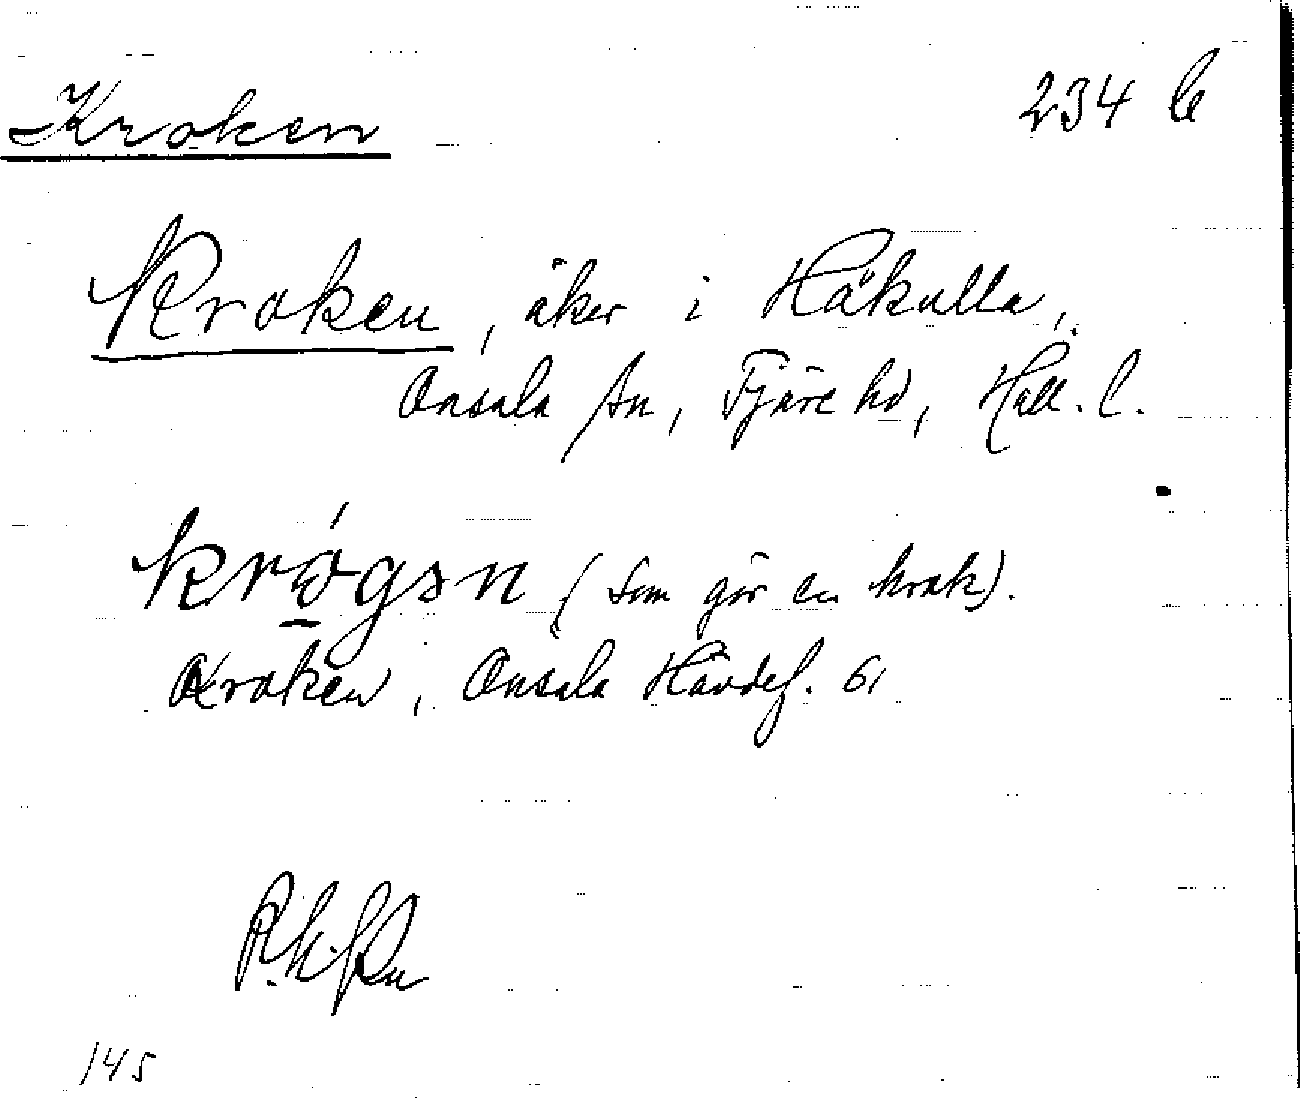 Kroken 234 b
Kroken, åker i Håkulla,
Onsala sn, Fjäre hd, Hall. l.
krǿgən (som gör en krok).
Kroken, Onsala Hävdef. 61
145